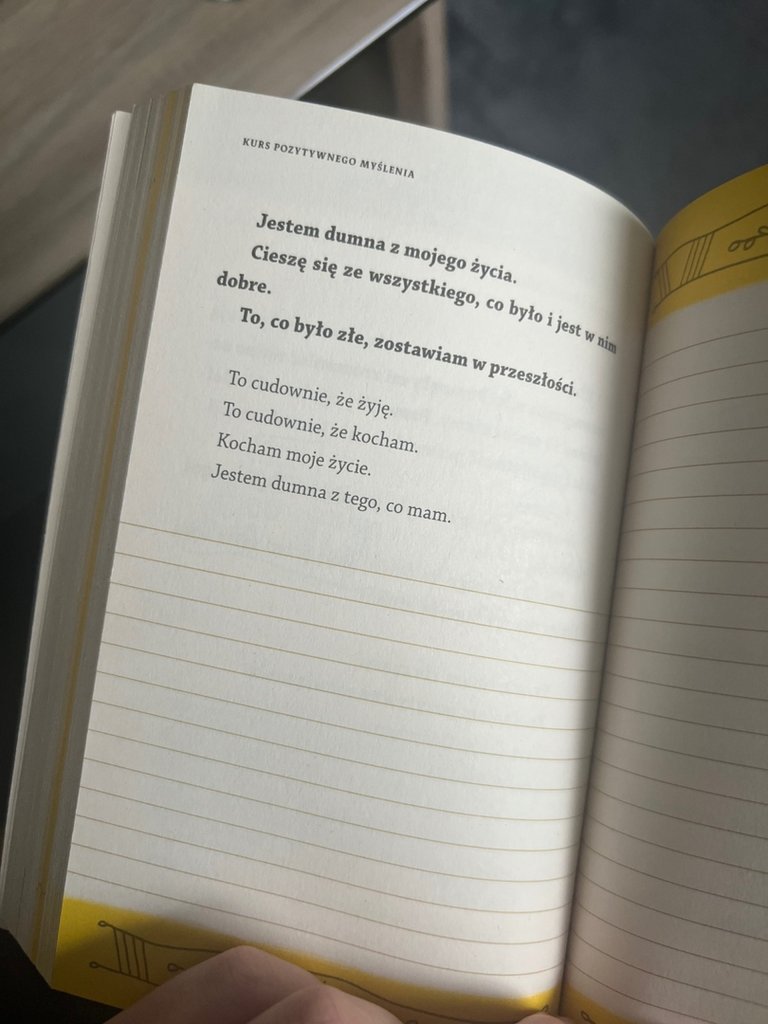 KURS POZYTYWNEGO MYŚLENIA
Jestem dumna z mojego życia.
Cieszę się ze wszystkiego, co było i jest w nim
dobre.
To, co było złe, zostawiam w przeszłości.
To cudownie, że żyję.
To cudownie, że kocham.
Kocham moje życie.
Jestem dumna z tego, co mam.